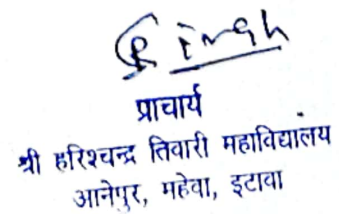 Singh
प्राचार्य
श्री हरिश्चन्द्र तिवारी महाविद्यालय
आनेपुर, महेवा, इटावा